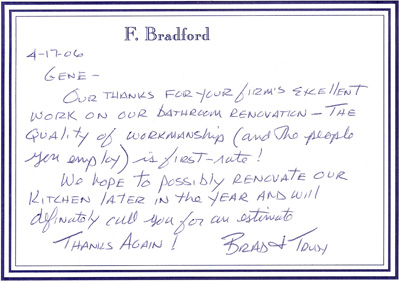 F. Bradford
4-17-06
GENE -
OUR THANKS FOR YOUR FIRM'S EXCELLENT
WORK ON OUR BATHROOM RENOVATION - THE
QUALITY OF WORKMANSHIP (and The people
you employ) is first-rate!
We hope to possibly RENOVATE OUR
KITCHEN LATER IN THE YEAR AND will
definately call you for an estimate
THANKS AGAIN! BRAD & TRUDY